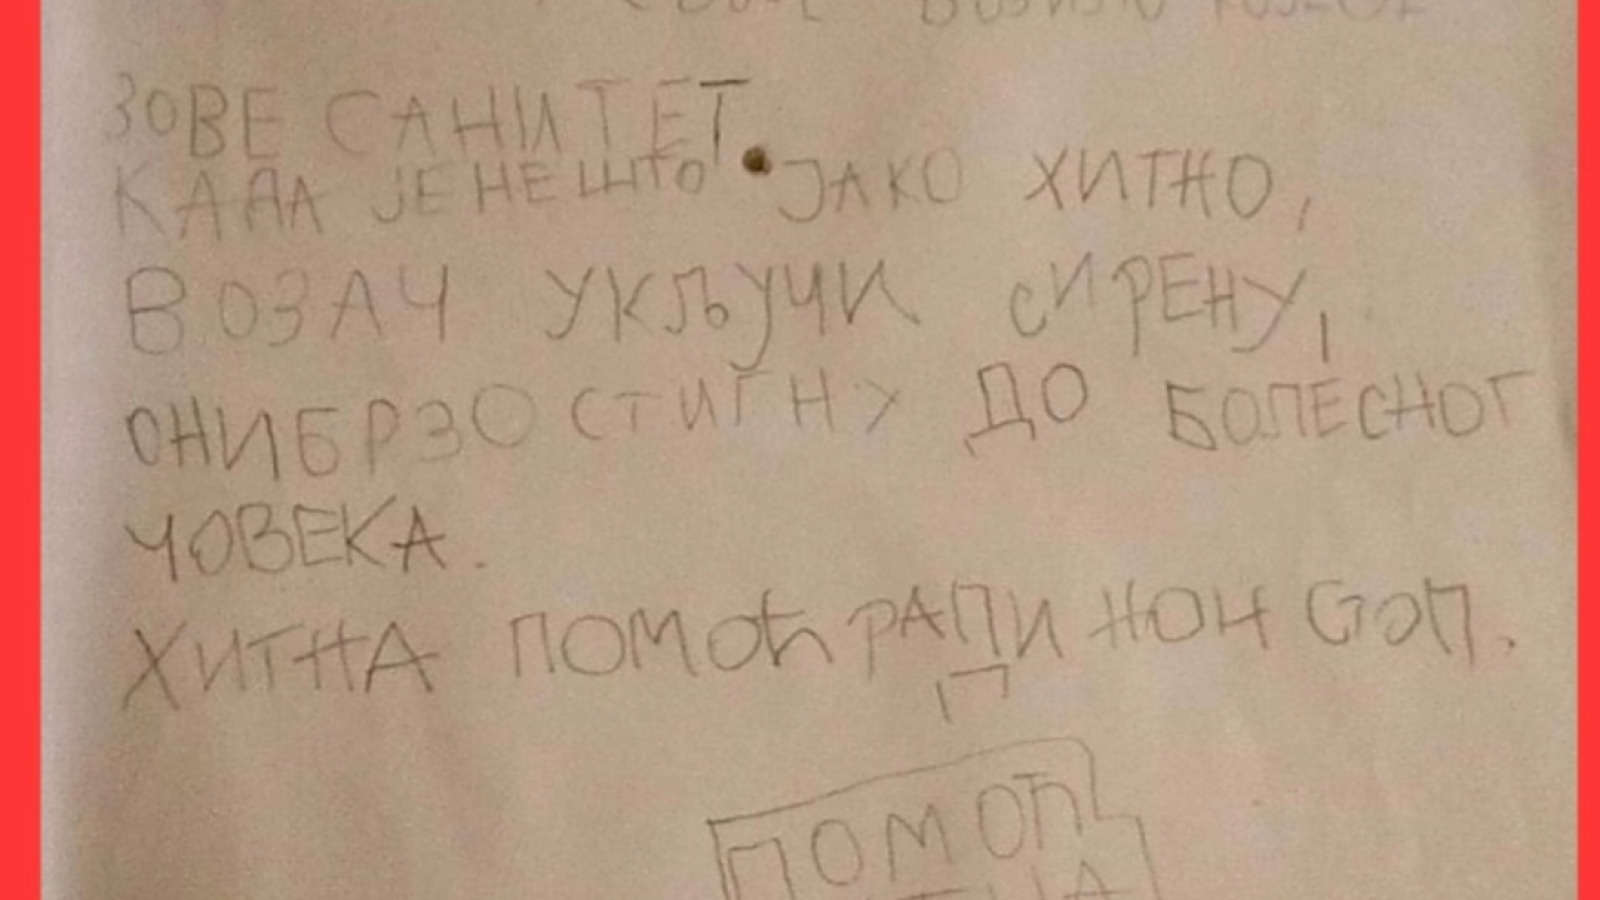 ЗОВЕ САНИТЕТ.
КАДА ЈЕ НЕШТО ЈАКО ХИТНО,
ВОЗАЧ УКЉУЧИ СИРЕНУ,
ОНИ БРЗО СТИГНУ ДО БОЛЕСНОГ
ЧОВЕКА.
ХИТНА ПОМОЋ РАПИ НОН СОП.
ПОМОЋ